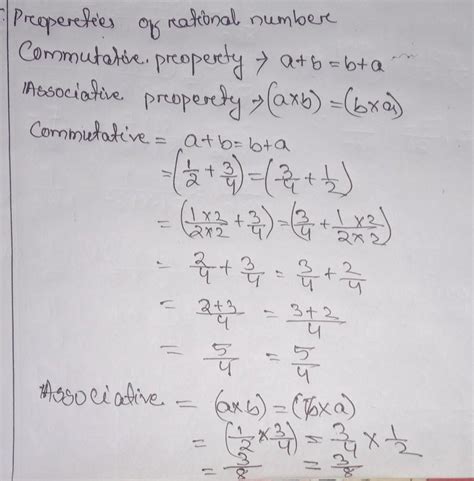 Propereties of rational number
Commutative. preoperety → a+b = b+a
Associative preoperety → (a×b) = (b×a)
Commutative = a+b=b+a
= (1/2 + 3/4) = (3/4 + 1/2)
= (1×2/2×2 + 3/4) = (3/4 + 1×2/2×2)
= 2/4 + 3/4 = 3/4 + 2/4
= 2+3/4 = 3+2/4
= 5/4 = 5/4
Associative = (a×b) = (b×a)
= (1/2 × 3/4) = 3/4 × 1/2
= 3/8 = 3/8